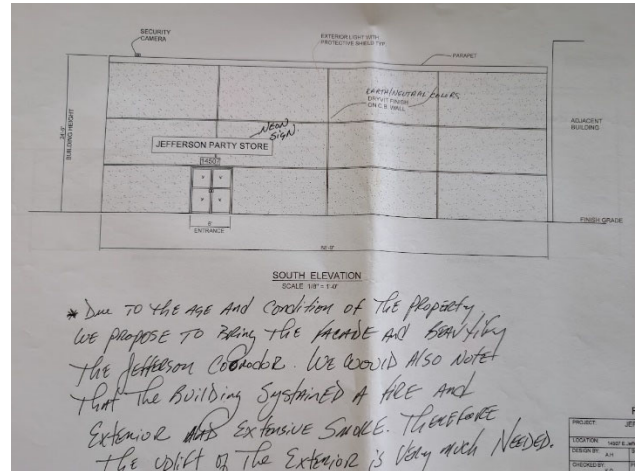 SECURITY
CAMERA
EXTERIOR LIGHT WITH
PROTECTIVE SHIELD TYP.
PARAPET
EARTH/NEUTRAL COLORS
DRYVIT FINISH
ON C.B. WALL
ADJACENT
BUILDING
BUILDING HEIGHT
NEON
SIGN
JEFFERSON PARTY STORE
14507
6'
ENTRANCE
FINISH GRADE
SOUTH ELEVATION
SCALE 1/8" = 1'-0"
* Due TO THE AGE AND Condition OF THE PROPERTY
WE PROPOSE TO BRING THE FACADE AND BEAUTIFY
THE JEFFERSON CORRODOR. WE WOULD ALSO NOTE
THAT THE BUILDING SUSTAINED A FIRE AND
EXTERIOR AND EXTENSIVE SMOKE. THEREFORE
THE UPLIFT OF THE EXTERIOR IS VERY MUCH NEEDED.
PROJECT:
LOCATION:
DESIGN BY: A.H.
CHECKED BY: